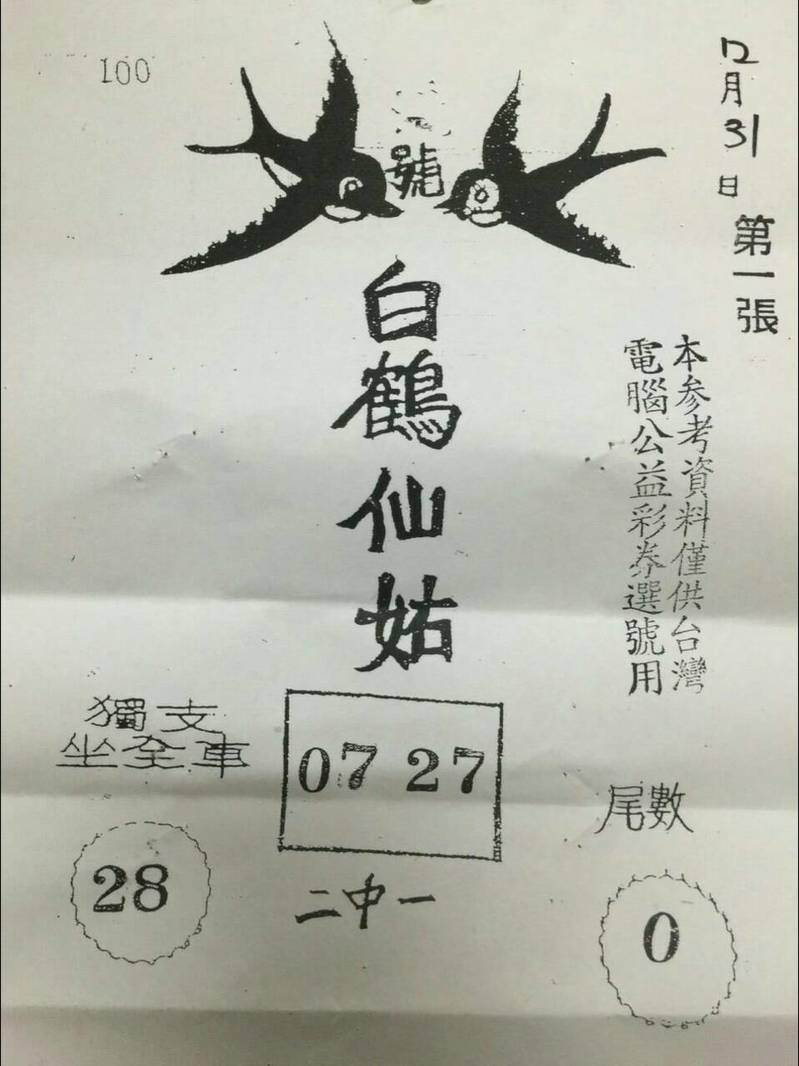 100
12月31日
第一張
號
白鶴仙姑
本參考資料僅供台灣
電腦公益彩券選號用
獨支
坐全車
28
07 27
二中一
尾數
0